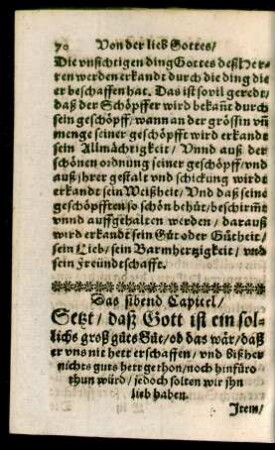 70 Von der lieb Gottes/
Die vnsichtigen ding Gottes deß Her⸗
ren werden erkandt durch die ding die
er beschaffen hat. Das ist sovil geredt/
daß der Schöpffer wird bekañt durch
sein geschöpff/ wann an der grössin vñ
menge seiner geschöpfft wird erkandt
sein Allmächtigkeit/ Vnnd auß der
schönen ordnung seiner geschöpff/ vnd
auß jhrer gestalt vnd schickung wirdt
erkandt sein Weißheit/ Vnd daß seine
geschöpffren so schön behüt/ beschirmt
vnnd auffgehalten werden/ darauß
wird erkandt sein Güt oder Gütheit/
sein Lieb/ sein Barmhertzigkeit/ vnd
sein Freündtschafft.
Das sibend Capitel/
Setzt/ daß Gott ist ein sol⸗
lichs groß güts Güt/ ob das wär/ daß
er vns nit hett erschaffen/ vnd bißher
nichts guts hett gethon/ noch hinfüro
thun würd/ jedoch solten wir jhn
lieb haben.
Item/